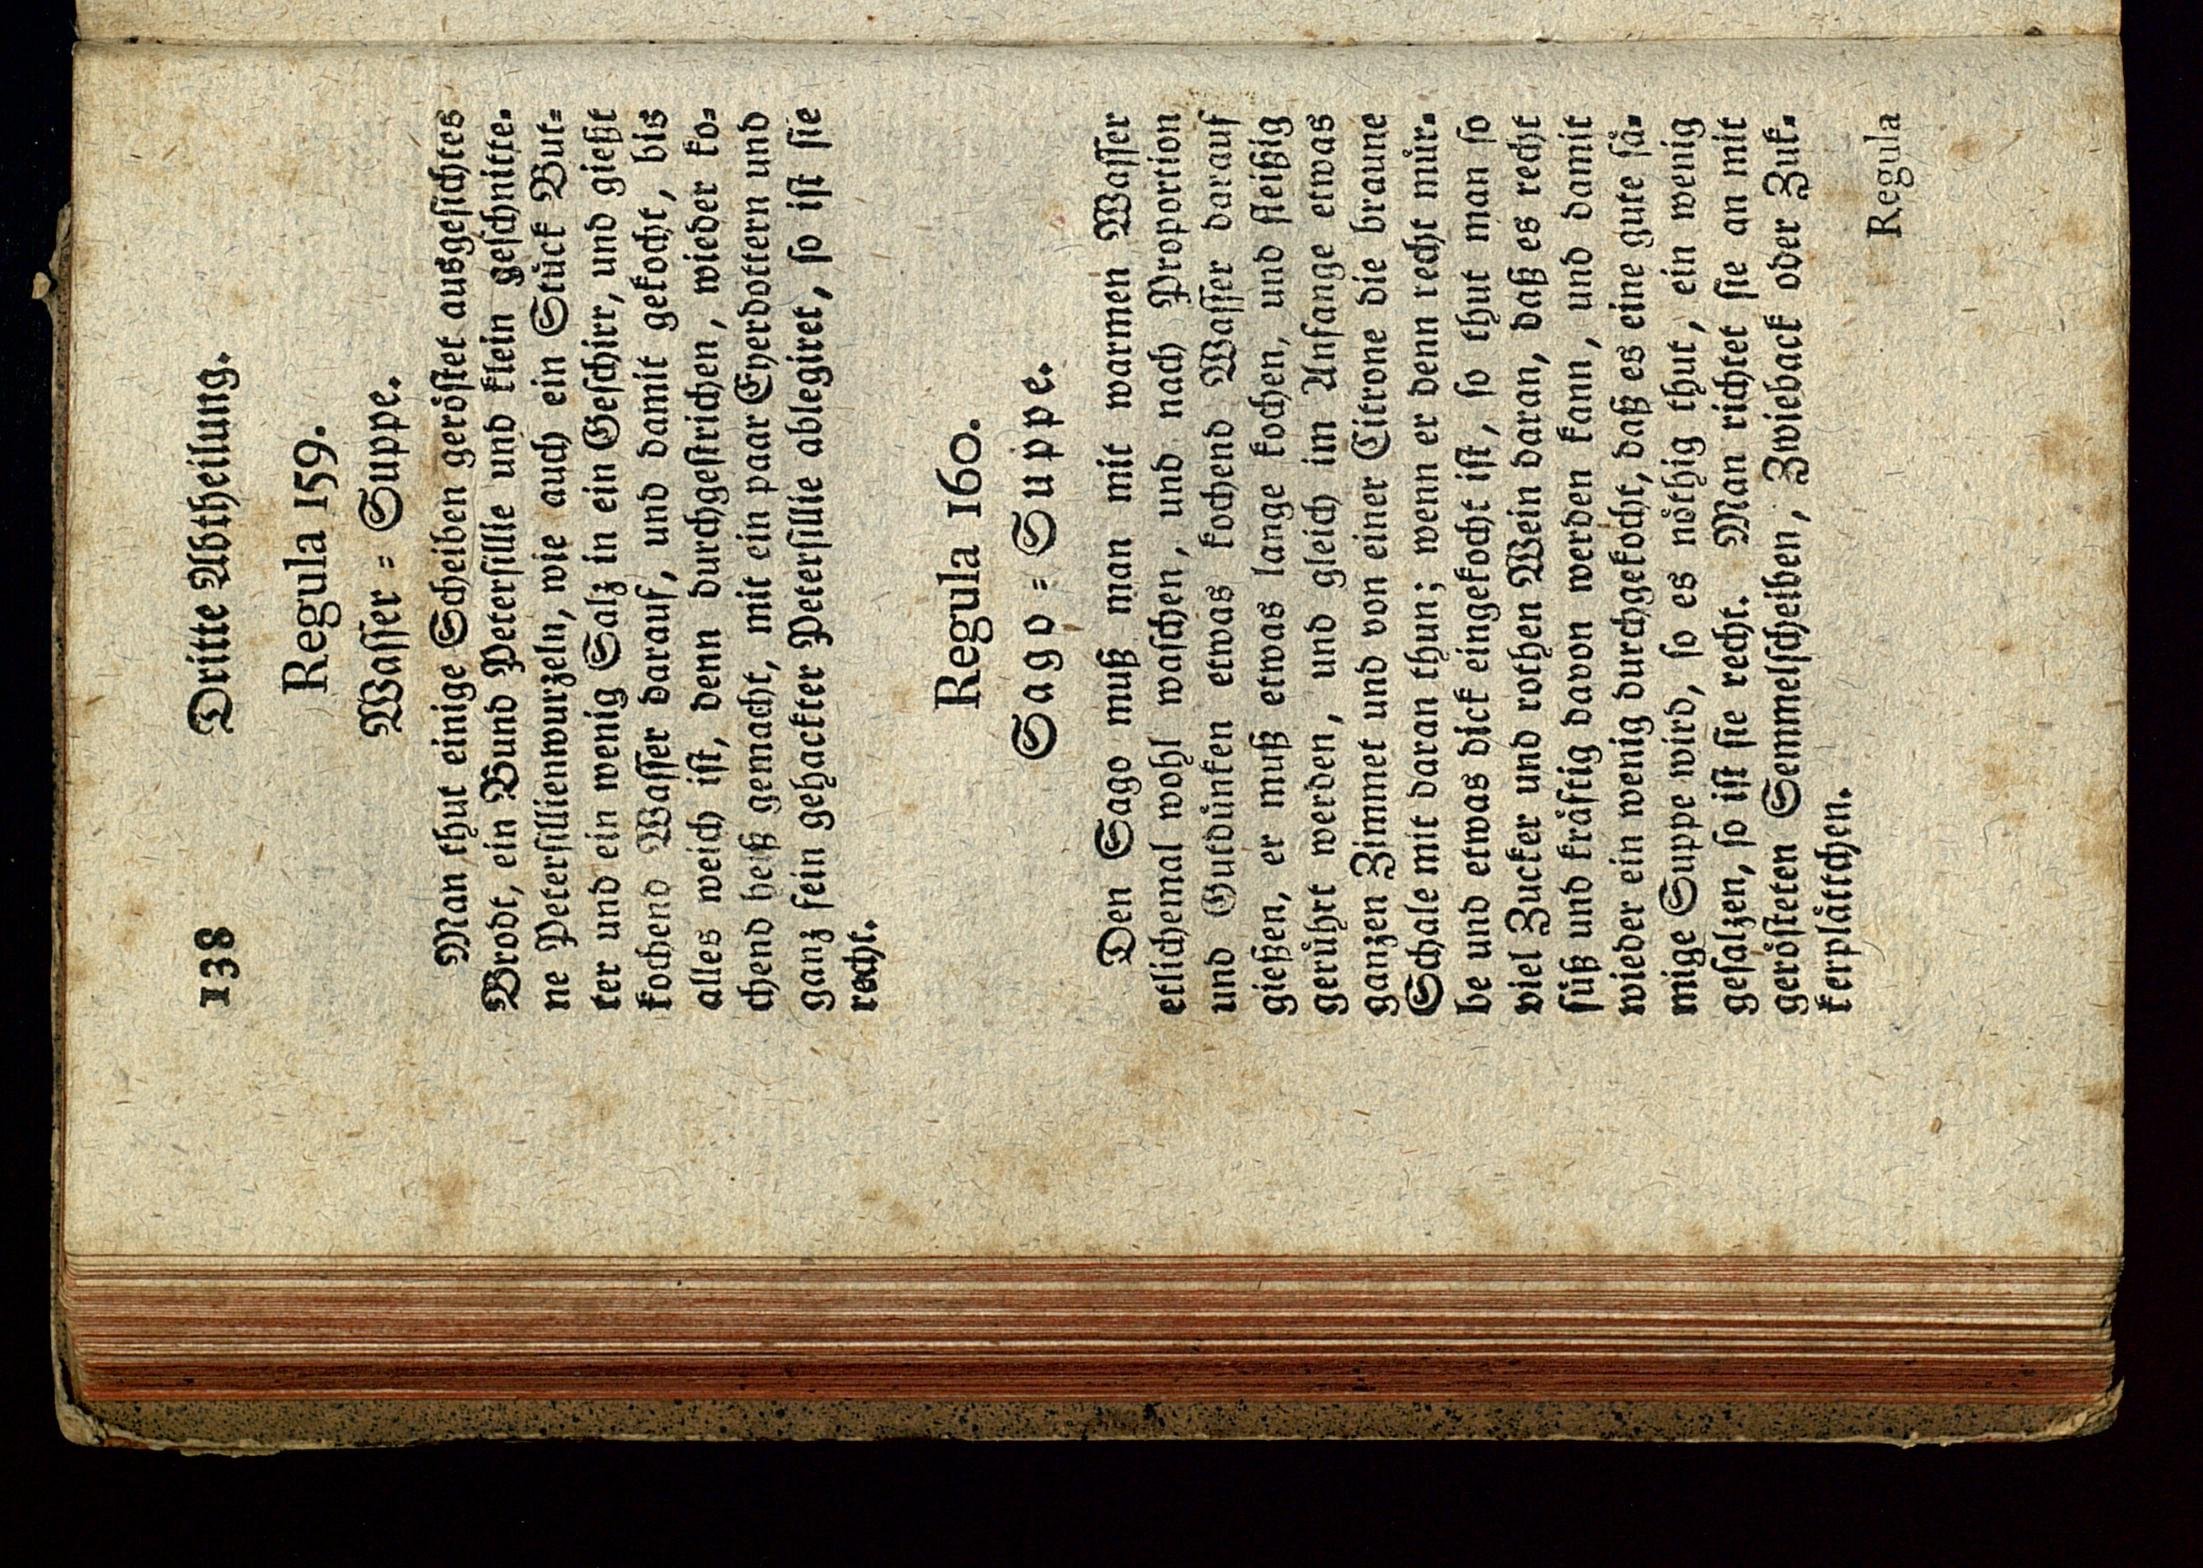 138 Dritte Abtheilung.
Regula 159.
Waſſer = Suppe.
Man thut einige Scheiben geröſtet ausgeſichtes
Brodt, ein Bund Peterſillie und klein geſchnitte-
ne Peterſillienwurzeln, wie auch ein Stück But-
ter und ein wenig Salz in ein Geſchirr, und gießt
kochend Waſſer darauf, und damit gekocht, bis
alles weich iſt, denn durchgeſtrichen, wieder ko-
chend heiß gemacht, mit ein paar Eyerdottern und
ganz fein gehackter Peterſillie ablegiret, ſo iſt ſie
recht.
Regula 160.
Sago = Suppe.
Den Sago muß man mit warmen Waſſer
etlichemal wohl waſchen, und nach Proportion
und Gutdünken etwas kochend Waſſer darauf
gießen, er muß etwas lange kochen, und fleißig
gerührt werden, und gleich im Anfange etwas
ganzen Zimmet und von einer Citrone die braune
Schale mit daran thun; wenn er denn recht mür-
be und etwas dick eingekocht iſt, ſo thut man ſo
viel Zucker und rothen Wein daran, daß es recht
ſüß und kräftig davon werden kann, und damit
wieder ein wenig durchgekocht, daß es eine gute ſä-
mige Suppe wird, ſo es nöthig thut, ein wenig
geſalzen, ſo iſt ſie recht. Man richtet ſie an mit
geröſteten Semmelſcheiben, Zwieback oder Zuk-
kerplättchen.
Regula